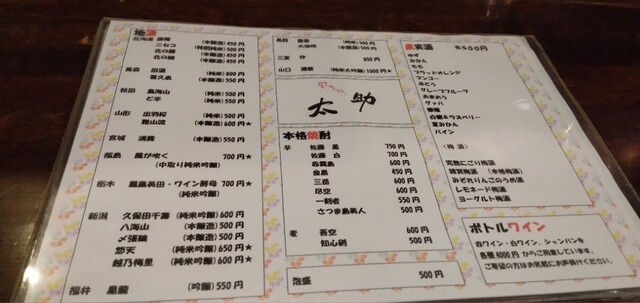 地酒
北海道
ニセコ (特別純米) 500円
北の錦 (本醸造) 450円
青森 田酒 (純米) 800円
喜久泉 (本醸造) 550円
秋田 鳥海山 (純米) 500円
ど辛 (純米) 500円
山形 出羽桜 (本醸造) 500円
霞山流 (本醸造) 600円★
宮城 浦霞 (本醸造) 550円
福島 風が吹く 700円★
(中取り純米吟醸)
栃木 鳳凰美田・ワイン酵母 700円★
(純米吟醸)
新潟 久保田千壽 (純米吟醸) 600円
八海山 (本醸造) 500円
〆張鶴 (本醸造) 550円
悠天 (純米吟醸) 650円★
越乃梅里 (純米吟醸) 600円★
福井 黒龍 (吟醸) 550円
長野 (純米) 500円
(本醸造) 500円
三重 作 850円
山口 獺祭 (純米大吟醸) 1000円★
太助
本格焼酎
芋 佐藤 黒 750円
佐藤 白 700円
赤霧島 600円
金黒 450円
三岳 600円
㐂空 600円
一刻者 550円
さつま島美人 500円
麦 吾空 600円
知心剣 500円
泡盛 500円
果実酒 各500円
ゆず
みかん
もも
ブラッドオレンジ
マンゴー
ぶどう
グレープフルーツ
あまおう
グァバ
檸檬
白桃&ラズベリー
夏みかん
パイン
(梅酒)
完熟にごり梅酒
雑賀梅酒 (本格梅酒)
みぞれりんごのうめ酒
レモネード梅酒
ヨーグルト梅酒
ボトルワイン
赤ワイン・白ワイン、シャンパンを
各種4000円からご用意しています。
ご希望の方はお気軽にお声掛けください。